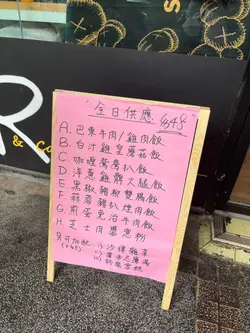 全日供應 $48
A. 巴東牛肉/雞肉飯
B. 白汁雞皇蘑菇飯
C. 咖喱鴛鴦扒飯
D. 洋蔥雞髀火腿飯
E. 黑椒豬柳雙腸飯
F. 蒜蓉豬扒燒肉飯
G. 煎蛋免治牛肉飯
H. 芝士肉醬意粉
另可加配
R
&